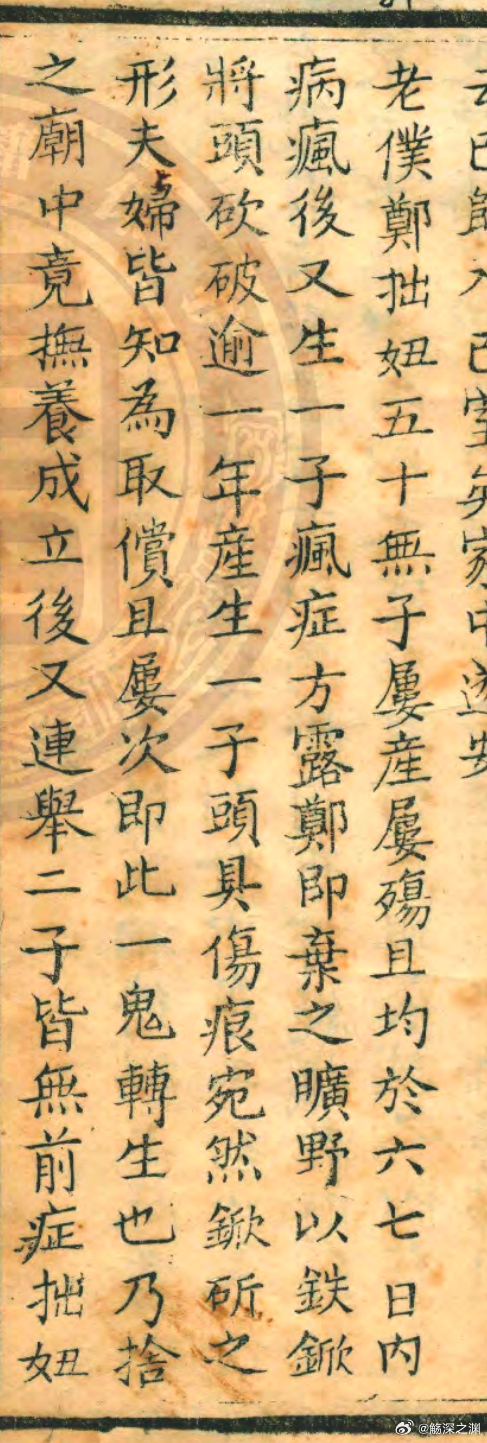 云已歸入己室矣家中遂安
老僕鄭拙妞五十無子屢産屢殤且均於六七日内
病瘋後又生一子瘋症方露鄭即棄之曠野以鉄鍁
將頭砍破逾一年産生一子頭具傷痕宛然鍁斫之
形夫婦皆知為取償且屢次即此一鬼轉生也乃捨
之廟中竟撫養成立後又連舉二子皆無前症拙妞
@觞深之渊